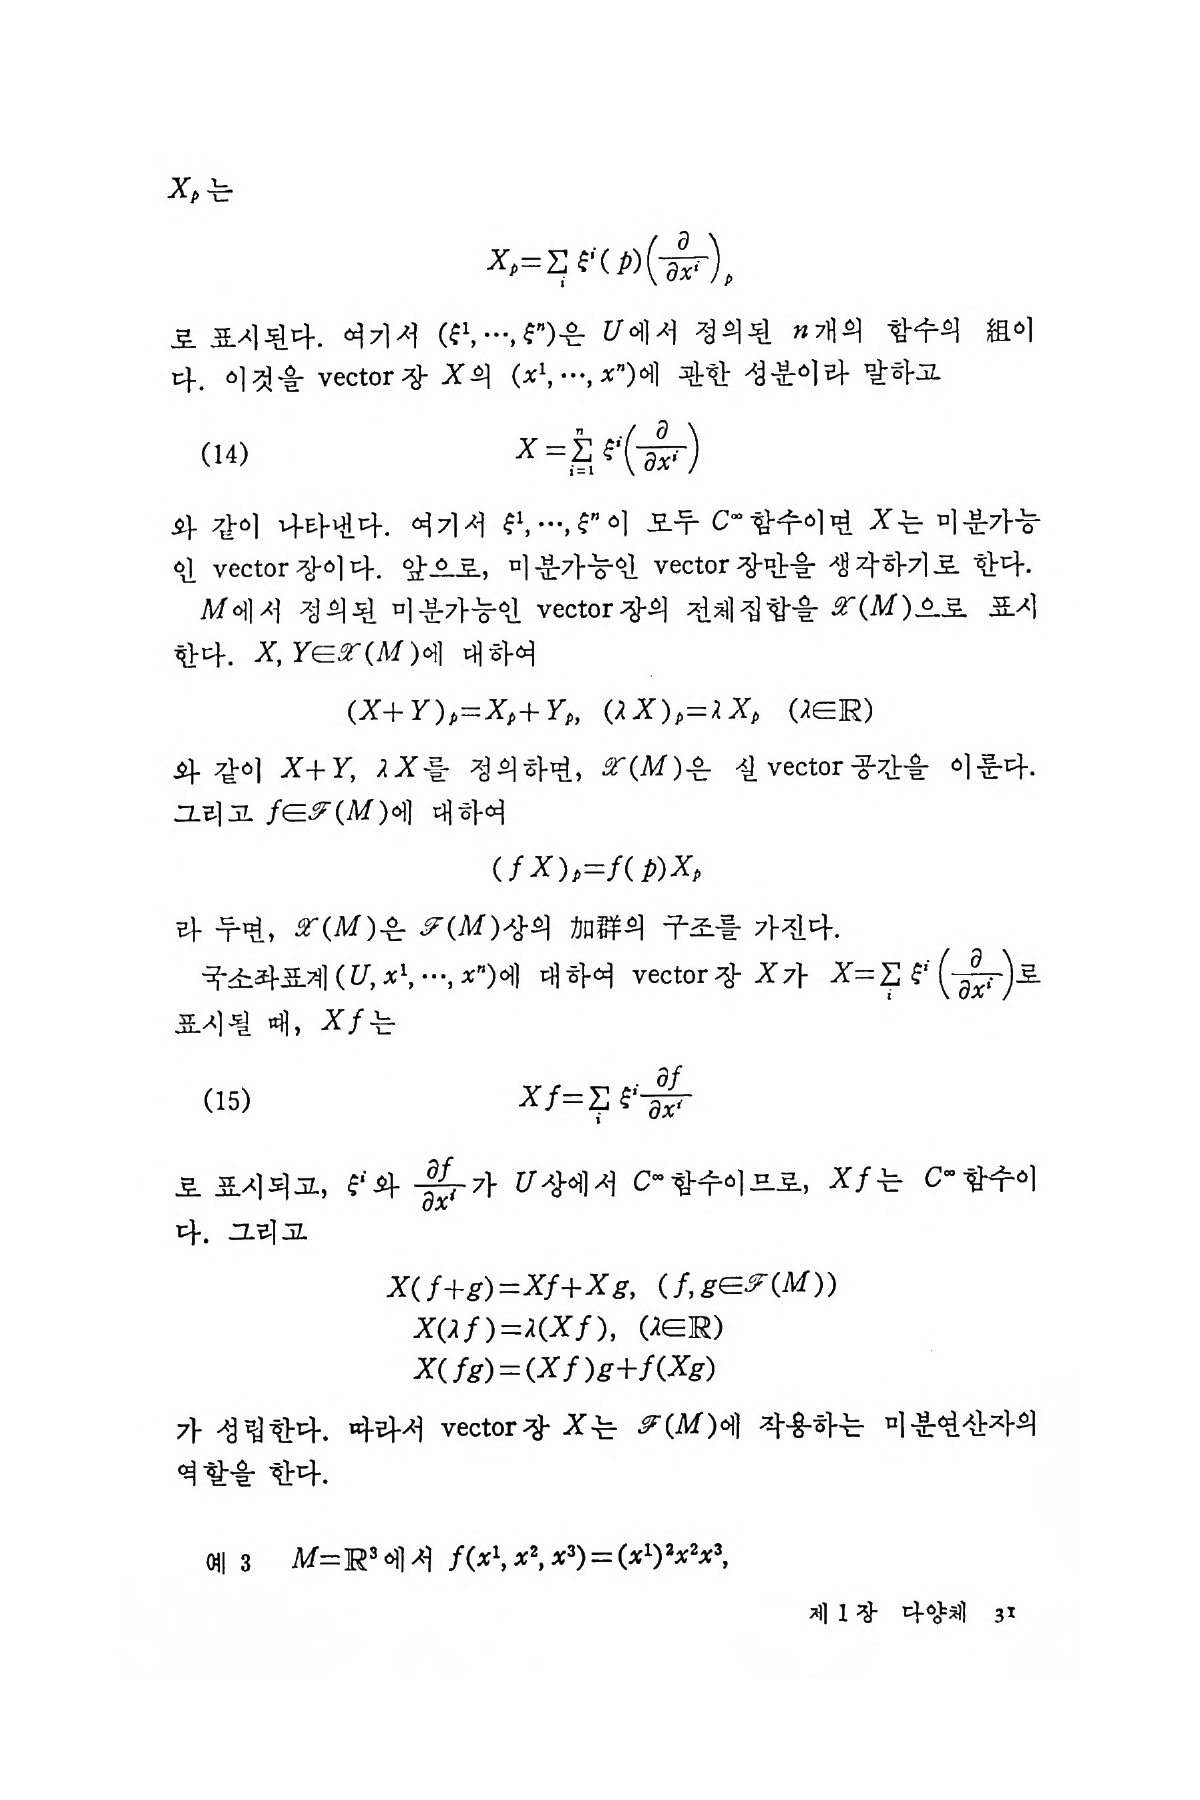 $X_p$는
$X_p=\sum_i \xi^i(p)\left(\frac{\partial}{\partial x^i}\right)_p$
로 표시된다. 여기서 $(\xi^1, \cdots, \xi^n)$은 $U$에서 정의된 $n$개의 함수의 組이
다. 이것을 vector장 $X$의 $(x^1, \cdots, x^n)$에 관한 성분이라 말하고
(14) $X=\sum_{i=1}^{n} \xi^i\left(\frac{\partial}{\partial x^i}\right)$
와 같이 나타낸다. 여기서 $\xi^1, \cdots, \xi^n$이 모두 $C^\infty$함수이면 $X$는 미분가능
인 vector장이다. 앞으로, 미분가능인 vector장만을 생각하기로 한다.
$M$에서 정의된 미분가능인 vector장의 전체집합을 $\mathscr{X}(M)$으로 표시
한다. $X, Y\in\mathscr{X}(M)$에 대하여
$(X+Y)_p=X_p+Y_p,\ (\lambda X)_p=\lambda X_p\ (\lambda\in\mathbb{R})$
와 같이 $X+Y, \lambda X$를 정의하면, $\mathscr{X}(M)$은 실 vector공간을 이룬다.
그리고 $f\in\mathscr{F}(M)$에 대하여
$(fX)_p=f(p)X_p$
라 두면, $\mathscr{X}(M)$은 $\mathscr{F}(M)$상의 加群의 구조를 가진다.
국소좌표계$(U, x^1, \cdots, x^n)$에 대하여 vector장 $X$가 $X=\sum_i \xi^i\left(\frac{\partial}{\partial x^i}\right)$로
표시될 때, $Xf$는
(15) $Xf=\sum_i \xi^i\frac{\partial f}{\partial x^i}$
로 표시되고, $\xi^i$와 $\frac{\partial f}{\partial x^i}$가 $U$상에서 $C^\infty$함수이므로, $Xf$는 $C^\infty$함수이
다. 그리고
$X(f+g)=Xf+Xg,\ (f, g\in\mathscr{F}(M))$
$X(\lambda f)=\lambda(Xf),\ (\lambda\in\mathbb{R})$
$X(fg)=(Xf)g+f(Xg)$
가 성립한다. 따라서 vector장 $X$는 $\mathscr{F}(M)$에 작용하는 미분연산자의
역할을 한다.
예 3 $M=\mathbb{R}^3$에서 $f(x^1, x^2, x^3)=(x^1)^2x^2x^3,$
제 1 장 다양체 31